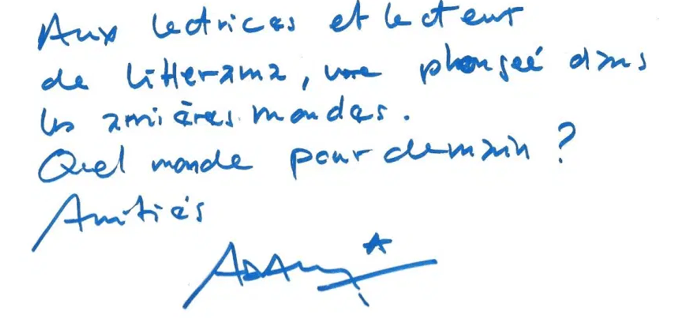 Aux lectrices et lecteur
de Litterama, une plongée dans
les arrières mondes.
Quel monde pour demain ?
Amitiés